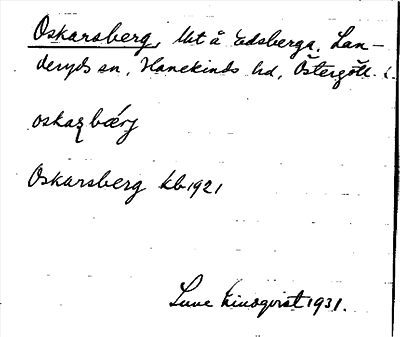 Oskarsberg, lht å Edsberga, Lan-
deryds sn, Hanekinds hd, Östergötl. l.
oskaʐbærj
Oskarsberg kb 1921
Sune Lindqvist 1931.